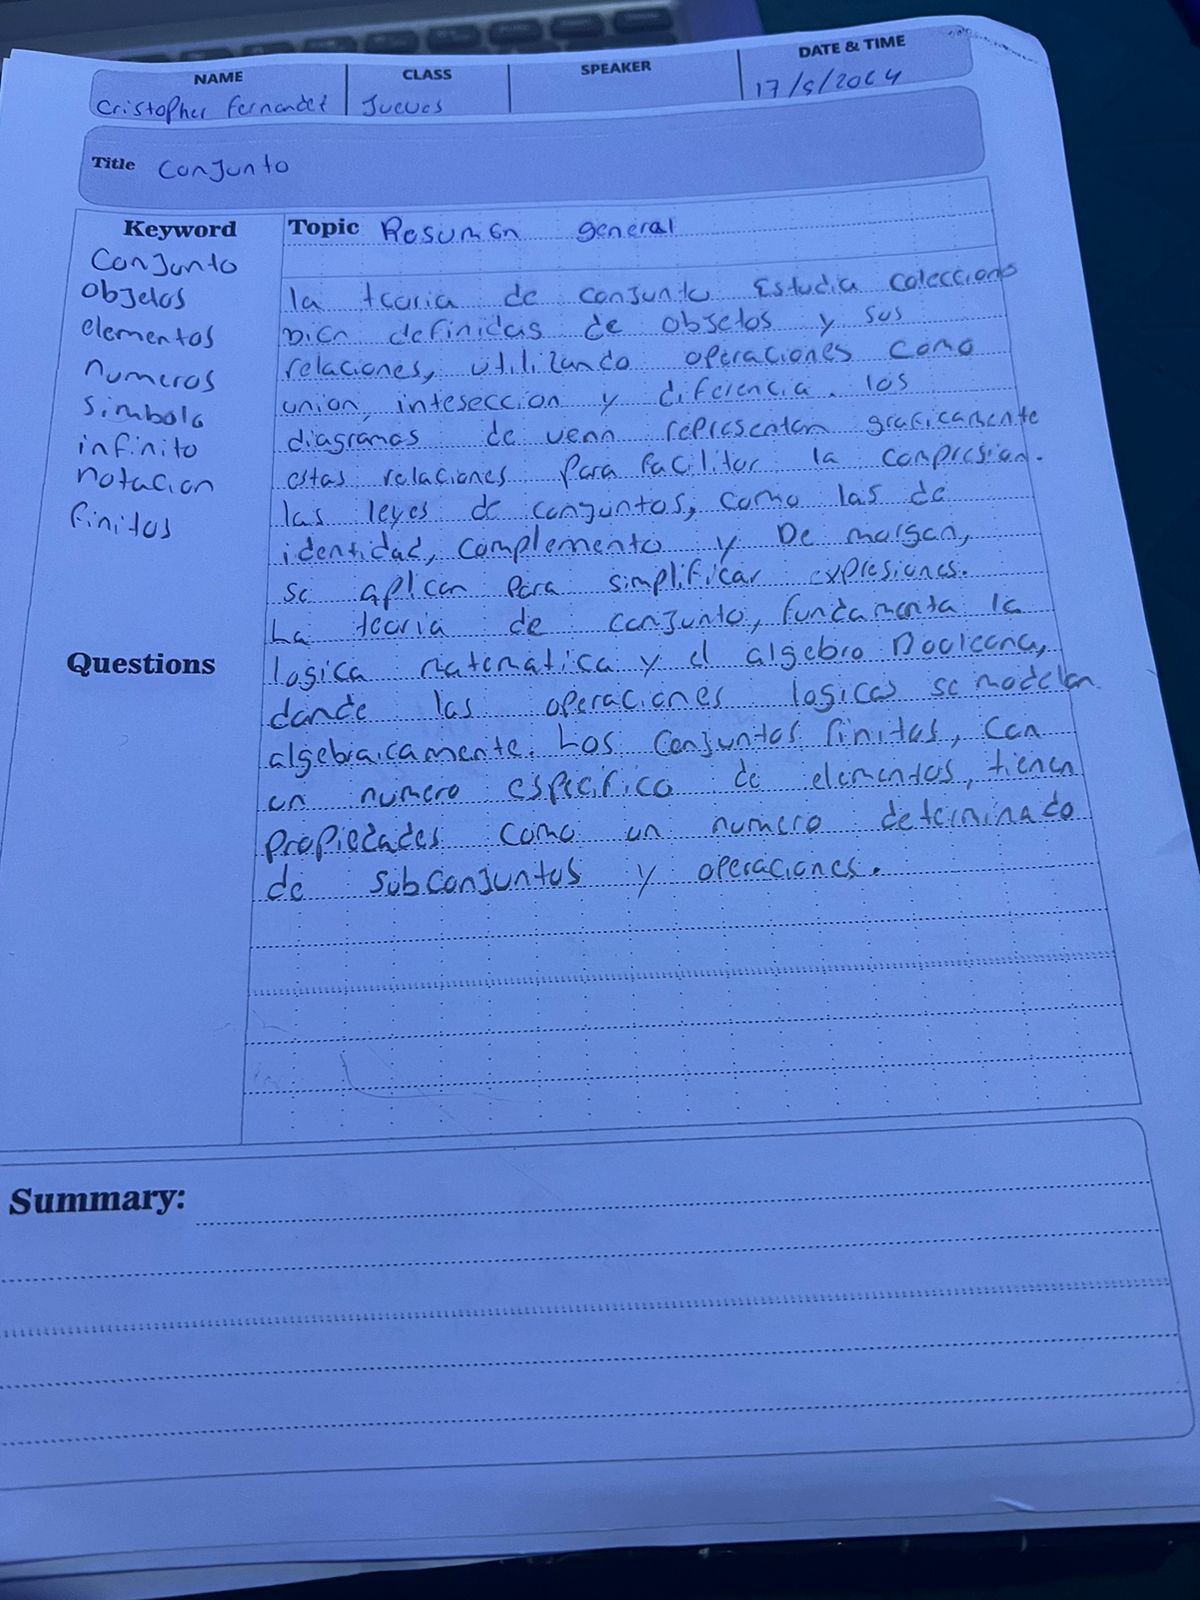 NAME CLASS SPEAKER DATE & TIME
Cristopher Fernandez Jueves
Title Conjunto
Keyword
Conjunto
objetos
elementos
numeros
simbolo
infinito
notacion
finitos
Questions
Topic Resumen general
la teoria de conjunto Estudia colecciones
bien definidas de objetos y sus
relaciones, utilizando operaciones como
union, inteseccion y diferencia. los
diagramas de venn representan graficamente
estas relaciones para facilitar la compresion.
las leyes de conjuntos, como las de
identidad, complemento y De morgan,
se aplican para simplificar expresiones.
La teoria de conjunto, fundamenta la
logica matematica y el algebra Booleana,
donde las operaciones logicas se modelan
algebraicamente. Los conjuntos finitos, con
un numero especifico de elementos, tienen
propiedades como un numero determinado
de subconjuntos y operaciones.
Summary: